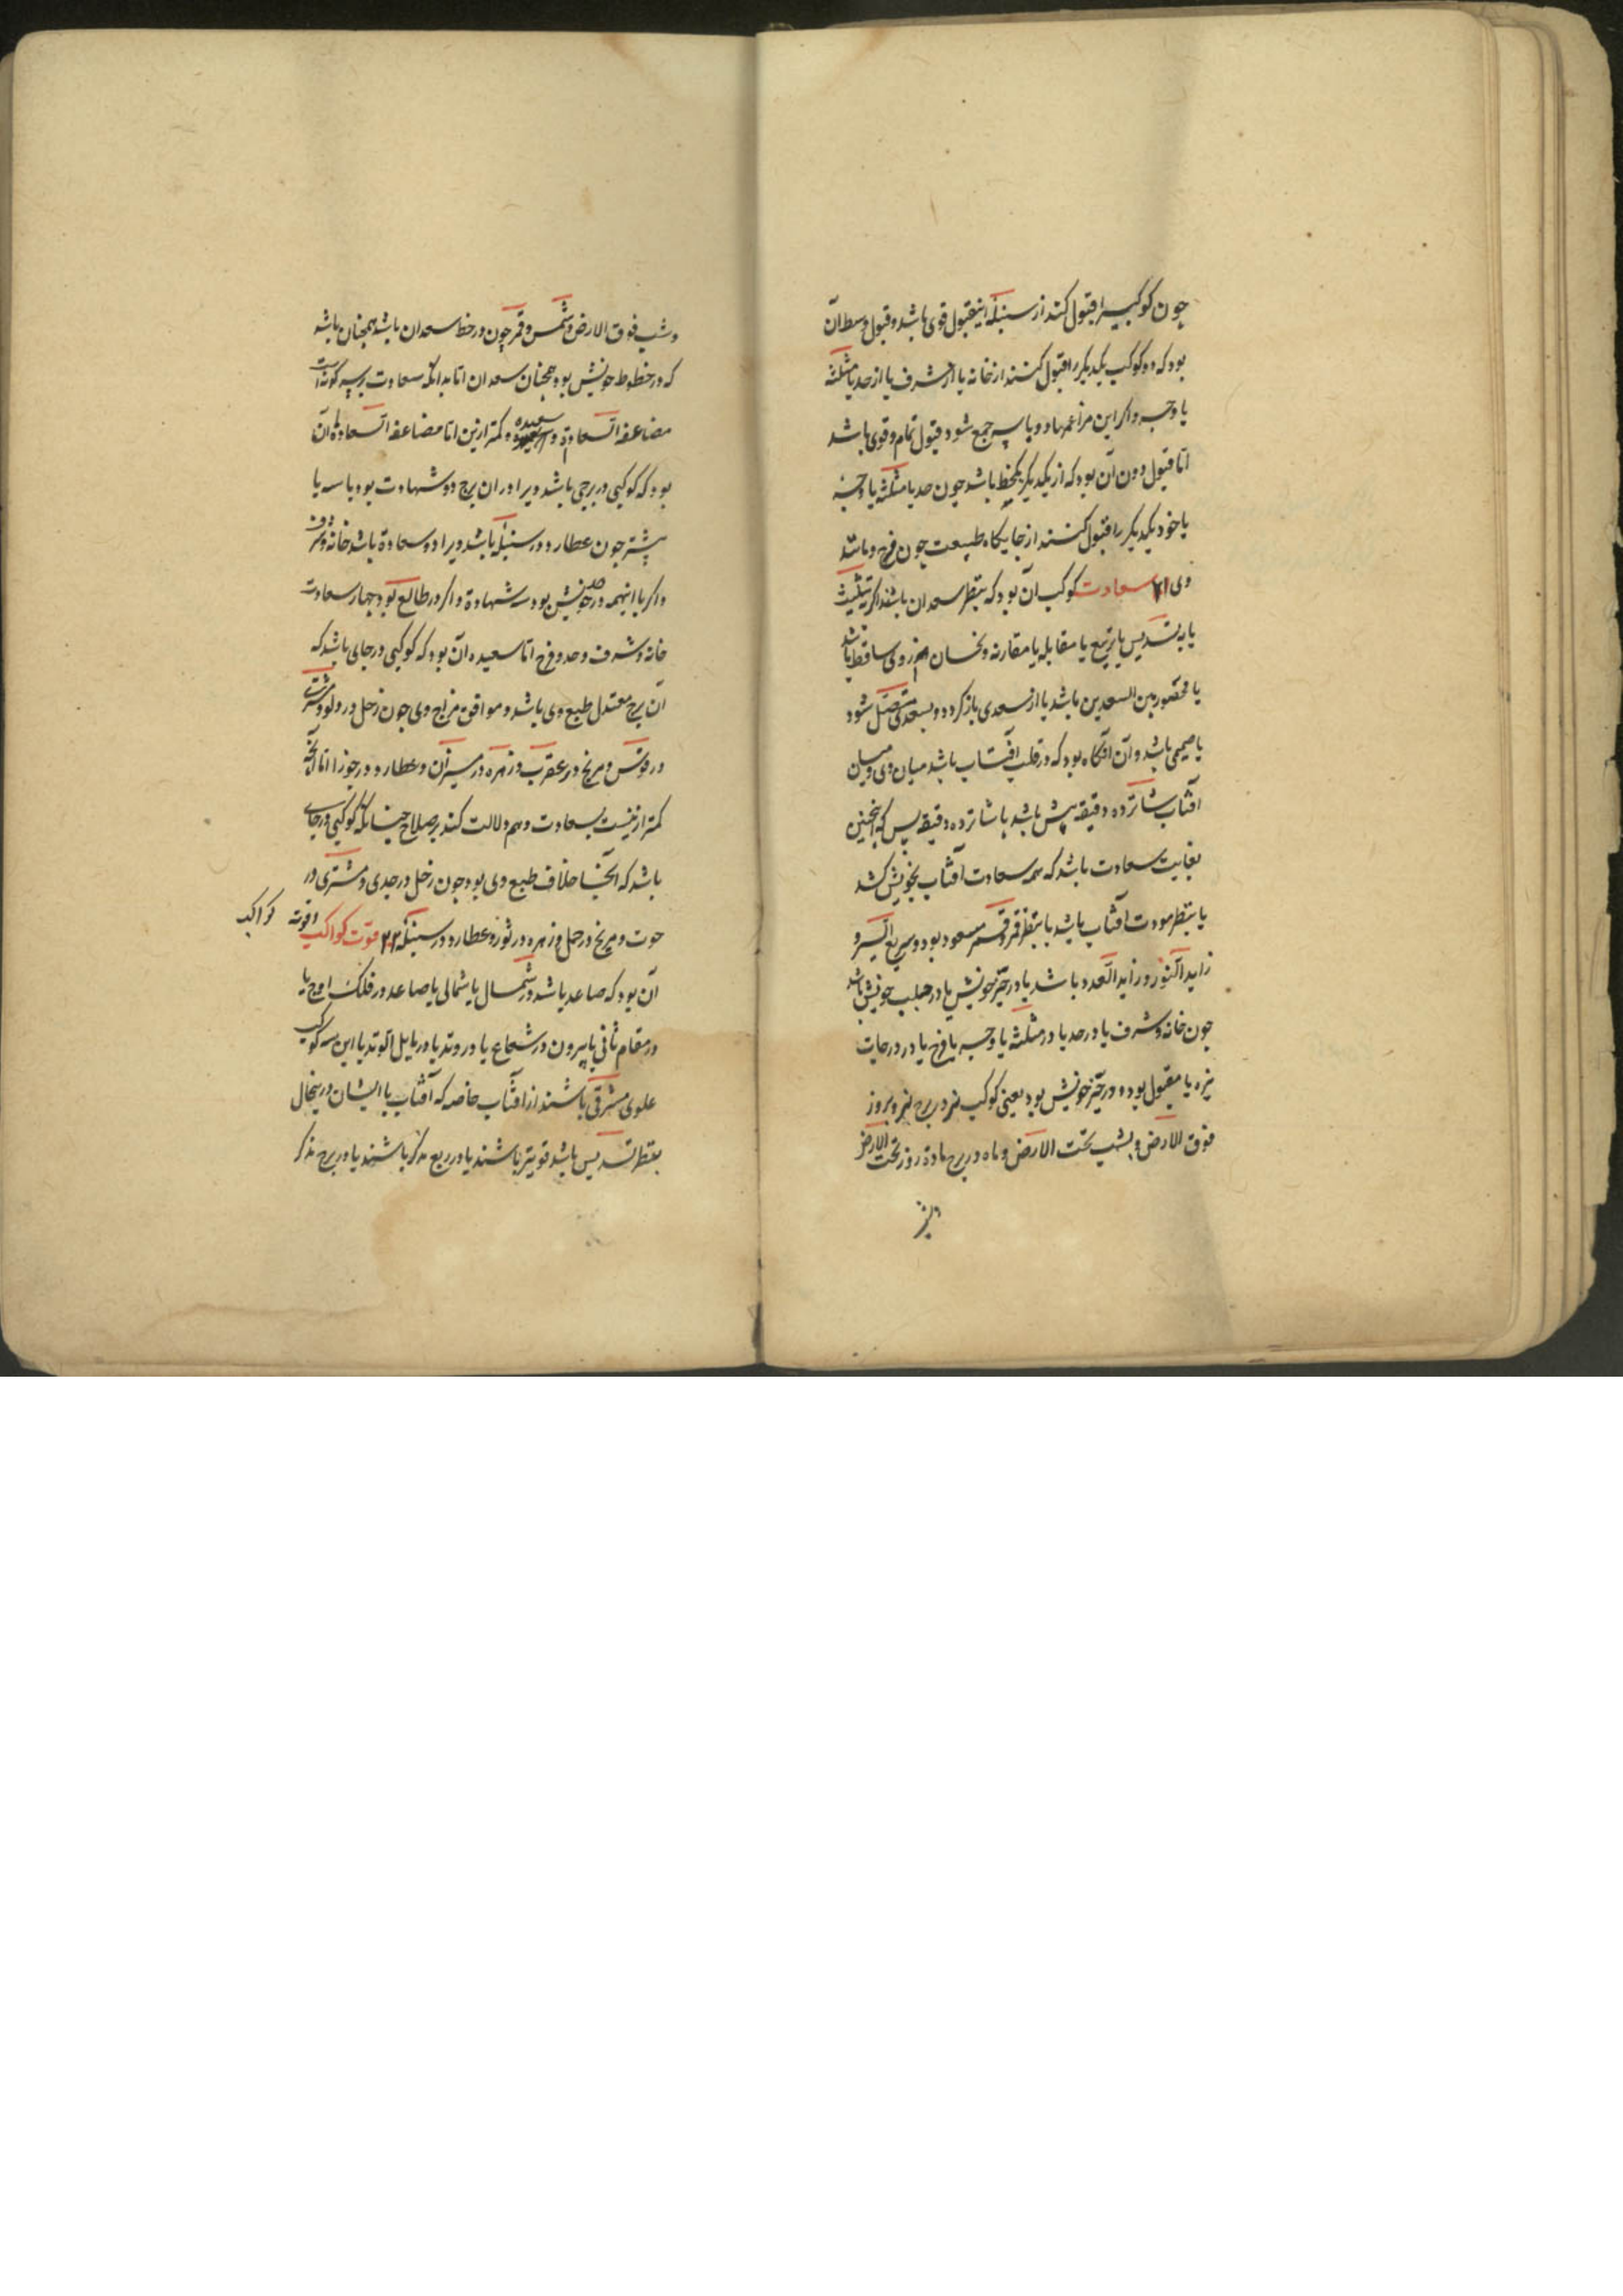 چون کوکبیرا قبول کند از سنبله اینقبول قوی باشد و قبول وسط آن
بود که دو کوکب یکدیکر را قبول کنند از خانه یا از شرف یا از حد یا مثلثه
یا وجه و اکر این مزاعم هادو یا سه جمع شود قبول تمام و قوی باشد
اما قبول دون آن بود که از یکدیکر بیکحظ باشد چون حد یا مثلثه یا وجه
یا خود یکدیکر را قبول کنند از جایکاه طبیعت چون فرح و مانند
وی ۲۱ سعادت کوکب آن بود که بنظر سعدان باشند اکر بتثلیث
یا به تسدیس یا بتربیع یا مقابله یا مقارنه و نحسان از وی ساقط باشد
یا محصور بین السعدین باشد یا از سعدی باز کردد و بسعدی متصل شود
یا صمیمی باشد و آن آنکاه بود که در قلب آفتاب باشد میان وی و میان
آفتاب شانزده دقیقه پیش باشد یا شانزده دقیقه پس که اینچنین
بغایت سعادت باشد که همه سعادت آفتاب بخویش کشد
یا بنظر مودت آفتاب باشد یا بنظر قمر و قمر مسعود بود و سریع السیر و
زاید النور و زاید العدد باشد یا در حیز خویش یا در حلب خویش باشد
چون خانه و شرف یا در حد یا در مثلثه یا وجه یا فرح یا در درجات
نیره یا مقبول بود و در حیز خویش بود یعنی کوکب نر در برج نر و بروز
فوق الارض و بشب تحت الارض و ماه در برج ماده روز تحت الارض
و شب فوق الارض و شمس و قمر چون در حظ سعدان باشد همچنان باشد
که در حظوظ خویش بود و همچنان سعدان اما بدانکه سعادت بر سه کونه است
مضاعفه السعادة و سعیده و کمتر ازین اما مضاعفه السعادة آن
بود که کوکبی در برجی باشد ویرا در ان برج دو شهادت بود یا سه یا
بیشتر چون عطارد در سنبله باشد ویرا دو سعادة باشد خانه و شرف
و اکر با اینهمه در حد خویش بود سه شهادة و اکر در طالع بود چهار سعادت
خانه و شرف و حد و فرح اما سعیده آن بود که کوکبی در جای باشد که
آن برج معتدل طبع وی باشد و موافق مزاج وی چون زحل در دلو و مشتری
در قوس و مریخ در عقرب و زهره در میزان و عطارد در جوزا اما آنچه
کمتر ازینست بسعادت و هم دلالت کند بر صلاح چنانکه کوکبی در جای
باشد که آنجا خلاف طبع وی بود چون زحل در جدی و مشتری در
حوت و مریخ در حمل و زهره در ثور و عطارد در سنبله ۲۲ قوت کواکب
کواکب
آن بود که صاعد باشد در شمال یا شمالی یا صاعد در فلک اوج یا
در مقام ثانی یا بیرون در شعاع یا در وتد یا در مایل الوتد یا این سه کوکب
علوی مشرقی باشند از آفتاب خاصه که آفتاب با ایشان درینحال
بنظر تسدیس باشد قویتر باشند یا در ربع مذکر باشند یا در برج مذکر